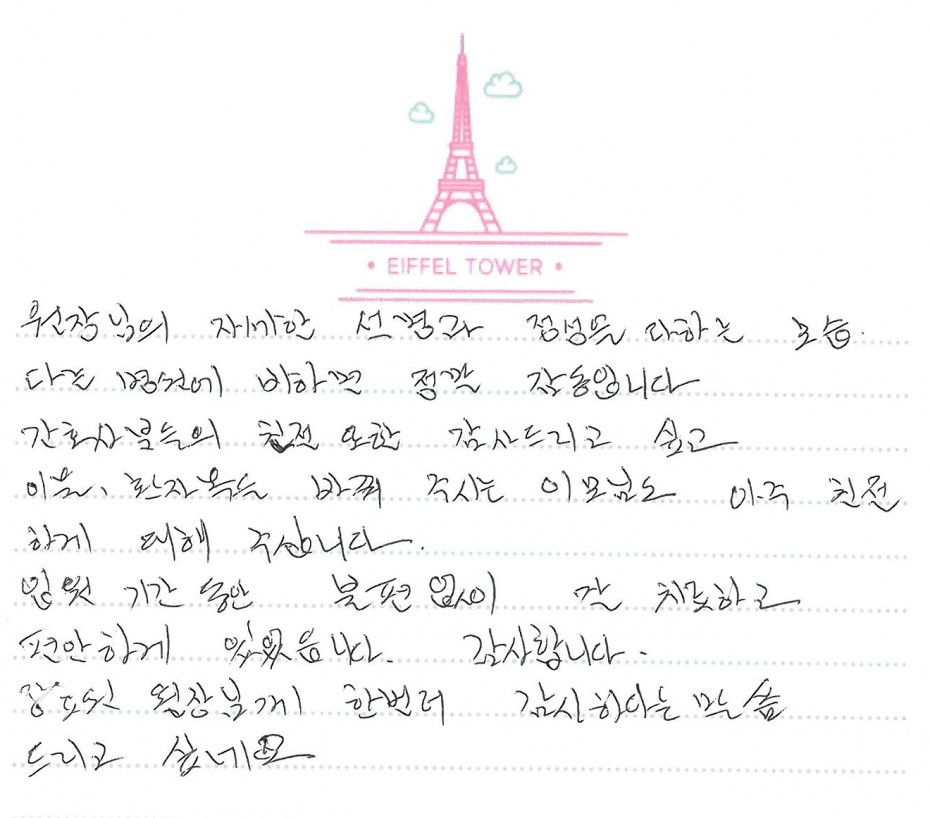 • EIFFEL TOWER •
원장님의 자세한 설명과 정성을 다하는 모습.
다른 병원에 비하면 정말 감동입니다
간호사분들의 친절 또한 감사드리고 싶고
이불, 환자복을 바꿔 주시는 이모님도 아주 친절
하게 대해 주십니다.
입원 기간 동안 불편없이 잘 치료하고
편안하게 있었읍니다. 감사합니다.
원장분께 한번더 감사하다는 말씀
드리고 싶네요